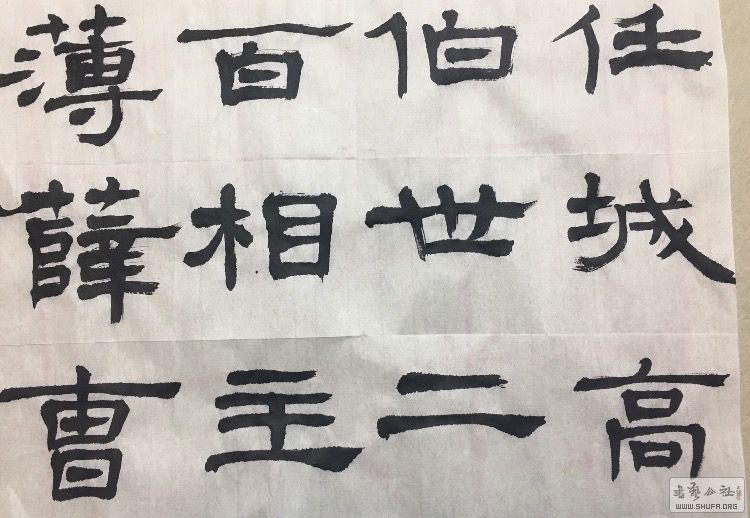 任城高
伯世二
百相主
薄薛曹
书艺公社
WWW.SHUFA.ORG